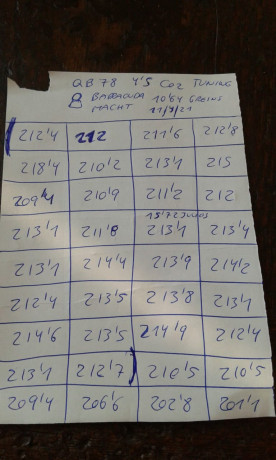 QB78 4'5 CO2 TUNING
8 BARRACUDA 10'64 GREINS
MACHT 11/3/21
212'4 212 211'6 212'8
218'4 210'2 213'1 215
209'4 210'9 211'2 212
13'72 JULIOS
213'1 211'8 213'1 213'4
213'1 214'4 213'9 214'2
212'4 213'5 213'8 213'1
214'6 213'5 214'9 212'4
213'1 212'7 210'5 210'5
209'4 206'6 202'8 201'1